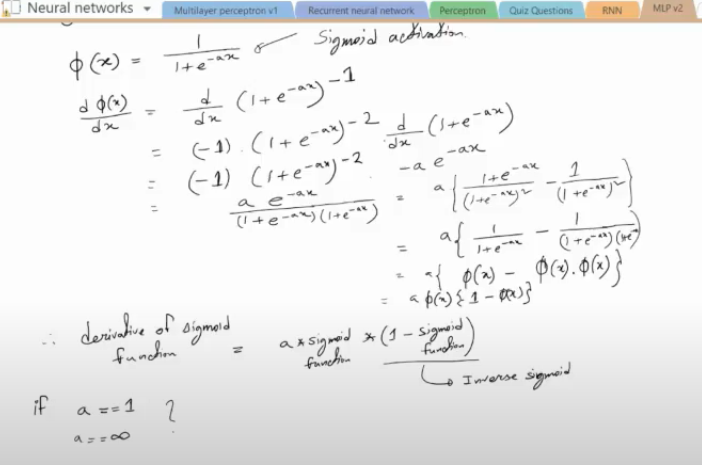 Neural networks
Multilayer perceptron v1
Recurrent neural network
Perceptron
Quiz Questions
RNN
MLP v2
ϕ(x) = 1/(1+e^{-ax}) Sigmoid activation
dϕ(x)/dx = d/dx (1+e^{-ax})^{-1}
= (-1) · (1+e^{-ax})^{-2} d/dx (1+e^{-ax})
= (-1) (1+e^{-ax})^{-2} · -a e^{-ax}
= a e^{-ax}/((1+e^{-ax})(1+e^{-ax})) = a{ (1+e^{-ax})/(1+e^{-ax})² - 1/(1+e^{-ax})² }
= a{ 1/(1+e^{-ax}) - 1/((1+e^{-ax})(1+e^-
= a{ ϕ(x) - ϕ(x).ϕ(x) }
= a ϕ(x) { 1 - ϕ(x) }
∴ derivative of sigmoid function = a * sigmoid function * (1 - sigmoid function)
↳ Inverse sigmoid
if a == 1 ?
a == ∞